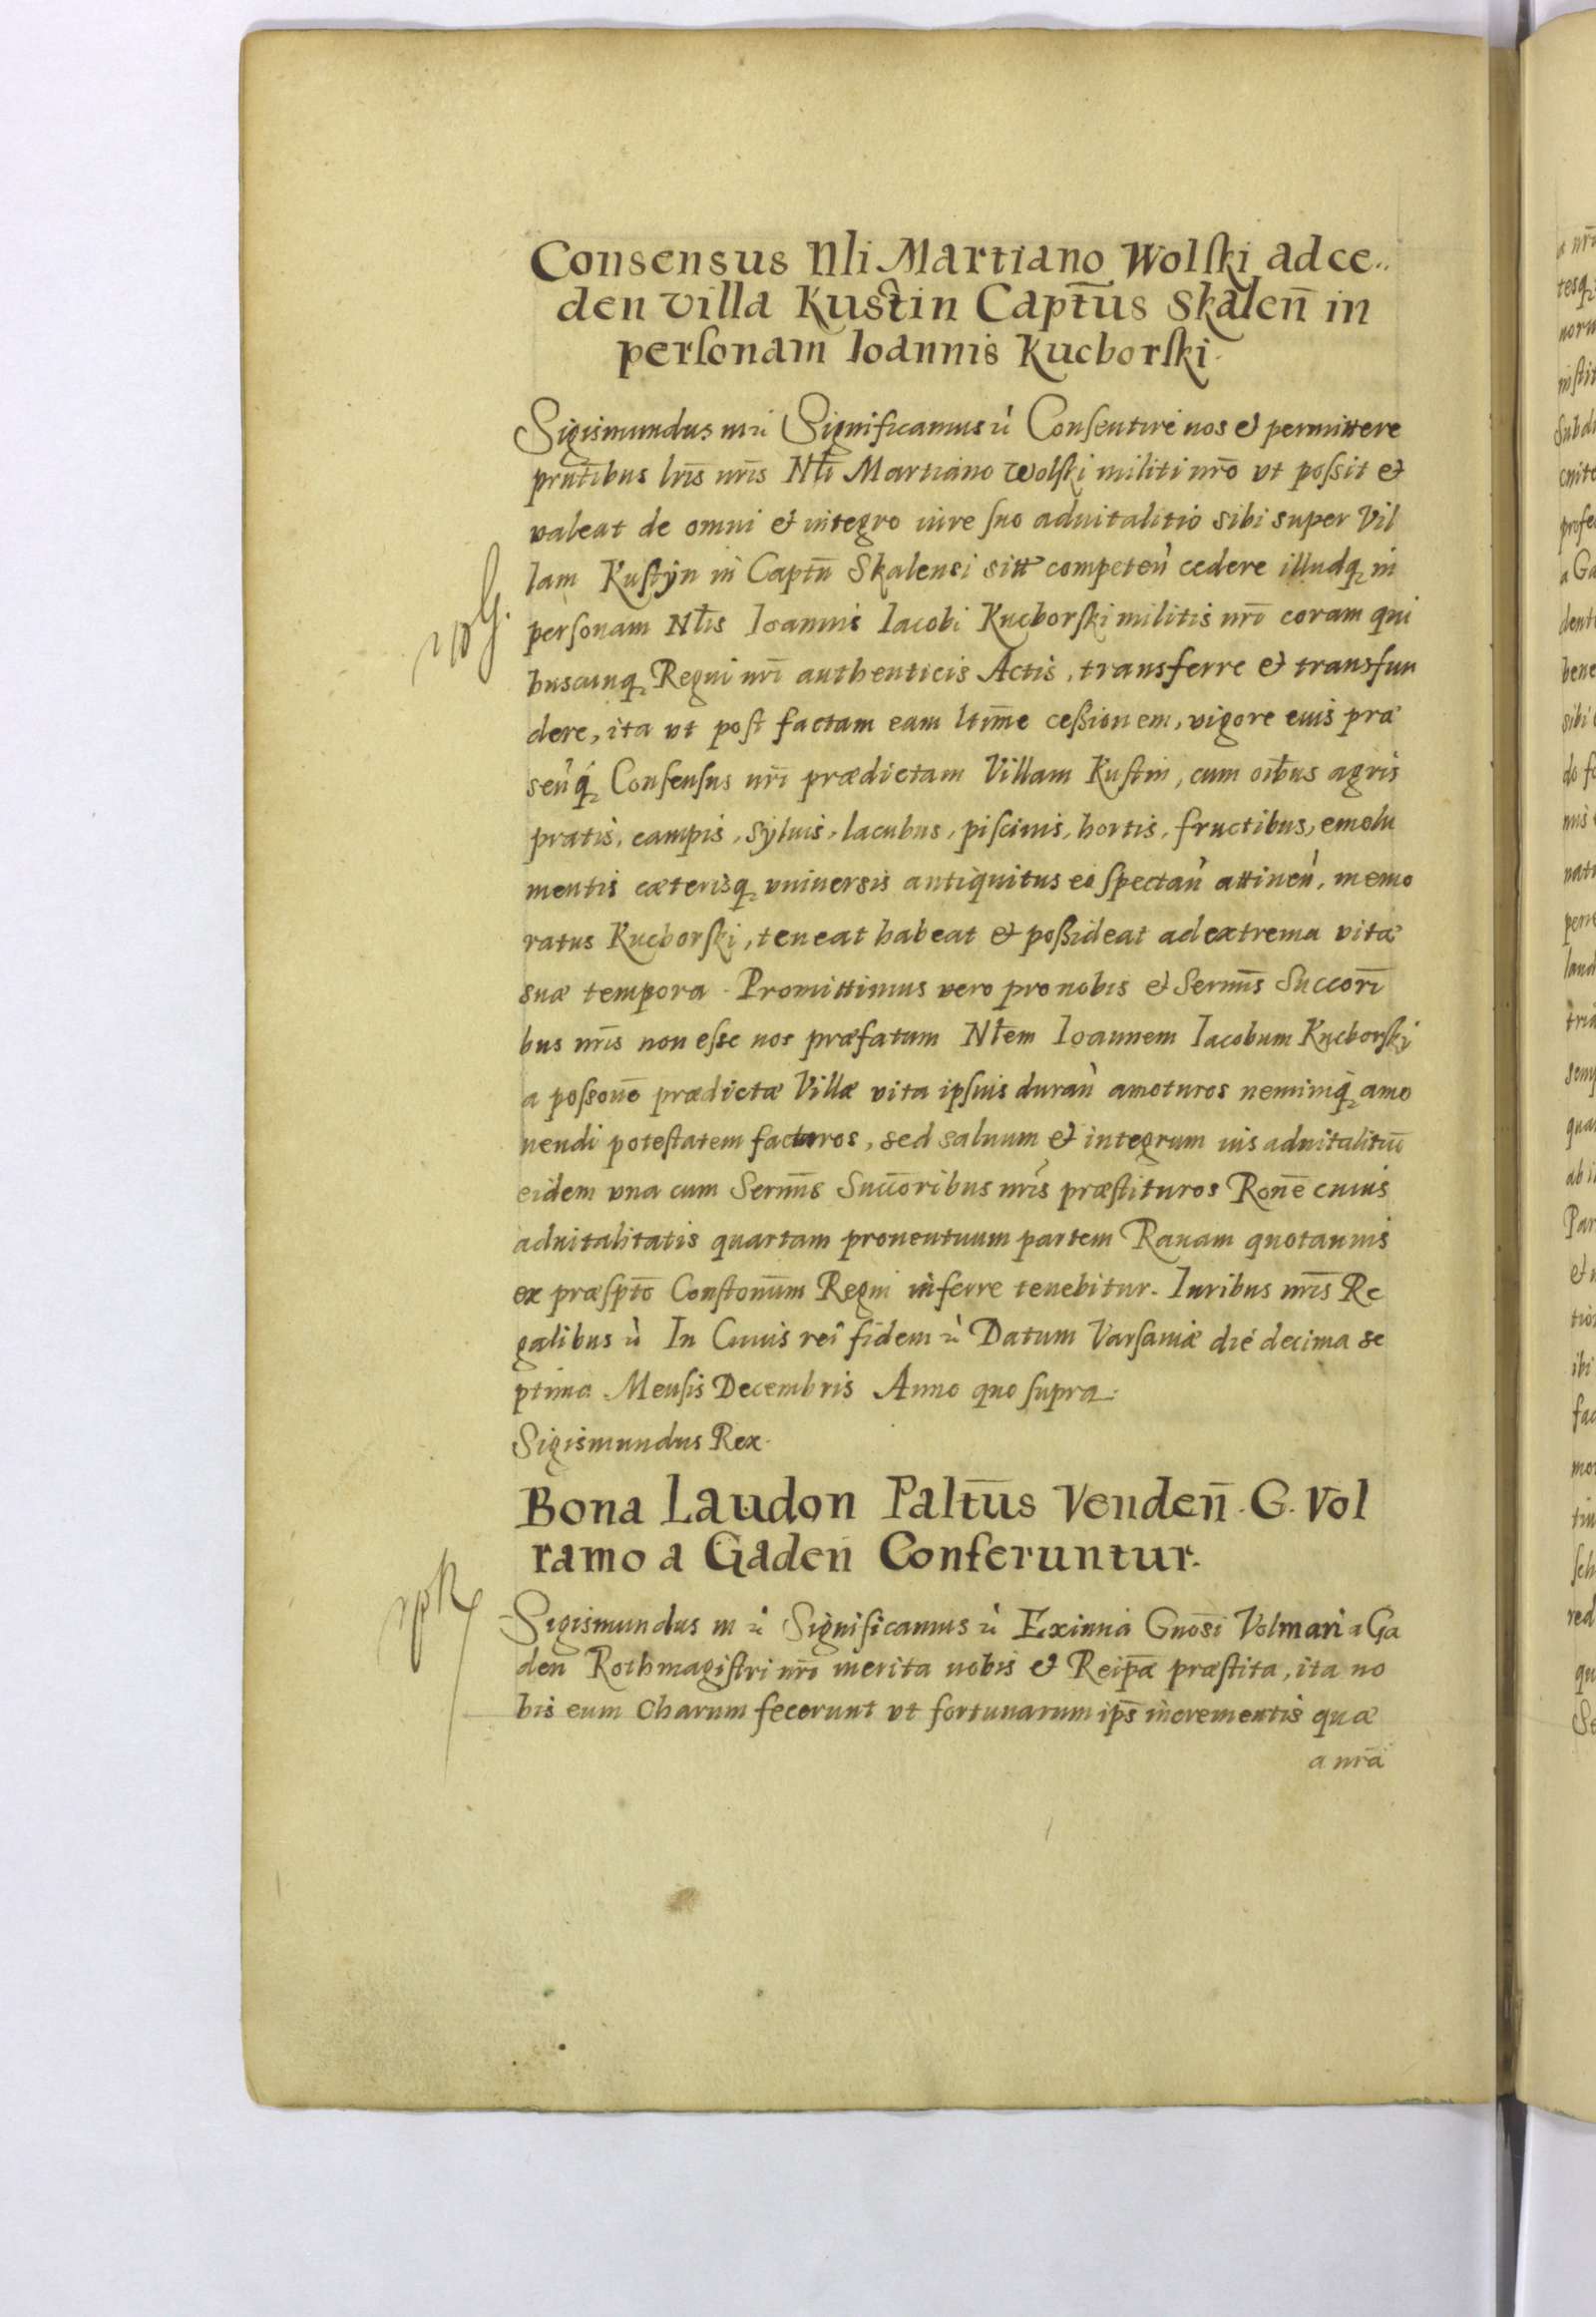 Consensus Nli Martiano Wolski ad ce..
den villa Kustin Capt̄us Skaleñ in
personam Ioannis Kucborski.
Sigismundus III ꝛc̀ Significamus ꝛc̀ Consentire nos et permittere
pn̄tibus lr̄is nr̄is Nłi Martiano Wolski militi nr̄o vt possit et
valeat de omni et integro iure suo aduitalitio sibi super Vil
lam Kustÿn in Captu̅ Skalensi sitt competeǹ cedere illudq̨ in
personam Nłis Ioannis Iacobi Kucborski militis nr̄i coram qui
buscunq̨ Regni nr̄i authenticis Actis, transferre et transfun
dere, ita vt post factam eam ltim̄e cessionem, vigore euis præ
seǹq̨ Consensus nr̄i prædictam Villam Kustin, cum oīb̄us agris
pratis, campis, syluis, lacubus, piscinis, hortis, fructibus, emolu
mentis cæterisq̨ vniuersis antiquitus eo spectaǹ attineǹ, memo
ratus Kucborski, teneat habeat et possideat ad extrema vitæ
suæ tempora. Promittimus vero pro nobis et Serm̄is Succorī
bus nr̄is non esse nos præfatum Nłem Ioannem Iacobum Kucborski
a possoñe prædictæ Villæ vita ipsius duraǹ amoturos neminiq̨ amo
uendi potestatem facturos, sed saluum et integrum ius aduitalitiū
eidem vna cum Serm̄is Succ̄oribus nr̄is præstituros Roñe cuius
aduitalitatis quartam prouentuum partem Rauam quotannis
ex præsp̄to Constonūm Regni inferre tenebitur. Iuribus nr̄is Re
galibus ꝛc̀ In Cuius rei fidem ꝛc̀ Datum Varsauiæ die decima se
ptima Mensis Decembris Anno quo supra.
Sigismundus Rex.
Bona Laudon Palt̄us Vendeñ. G. Vol
ramo a Gaden Conferuntur.
Sigismundus III ꝛc̀ Significamus ꝛc̀ Eximia Gnosī Volmari a Ga
den Rothmagistri nr̄i merita nobis et Reip̄æ præstita, ita no
bis eum charum fecerunt vt fortunarum ip̄s incrementis quæ
a nr̄a